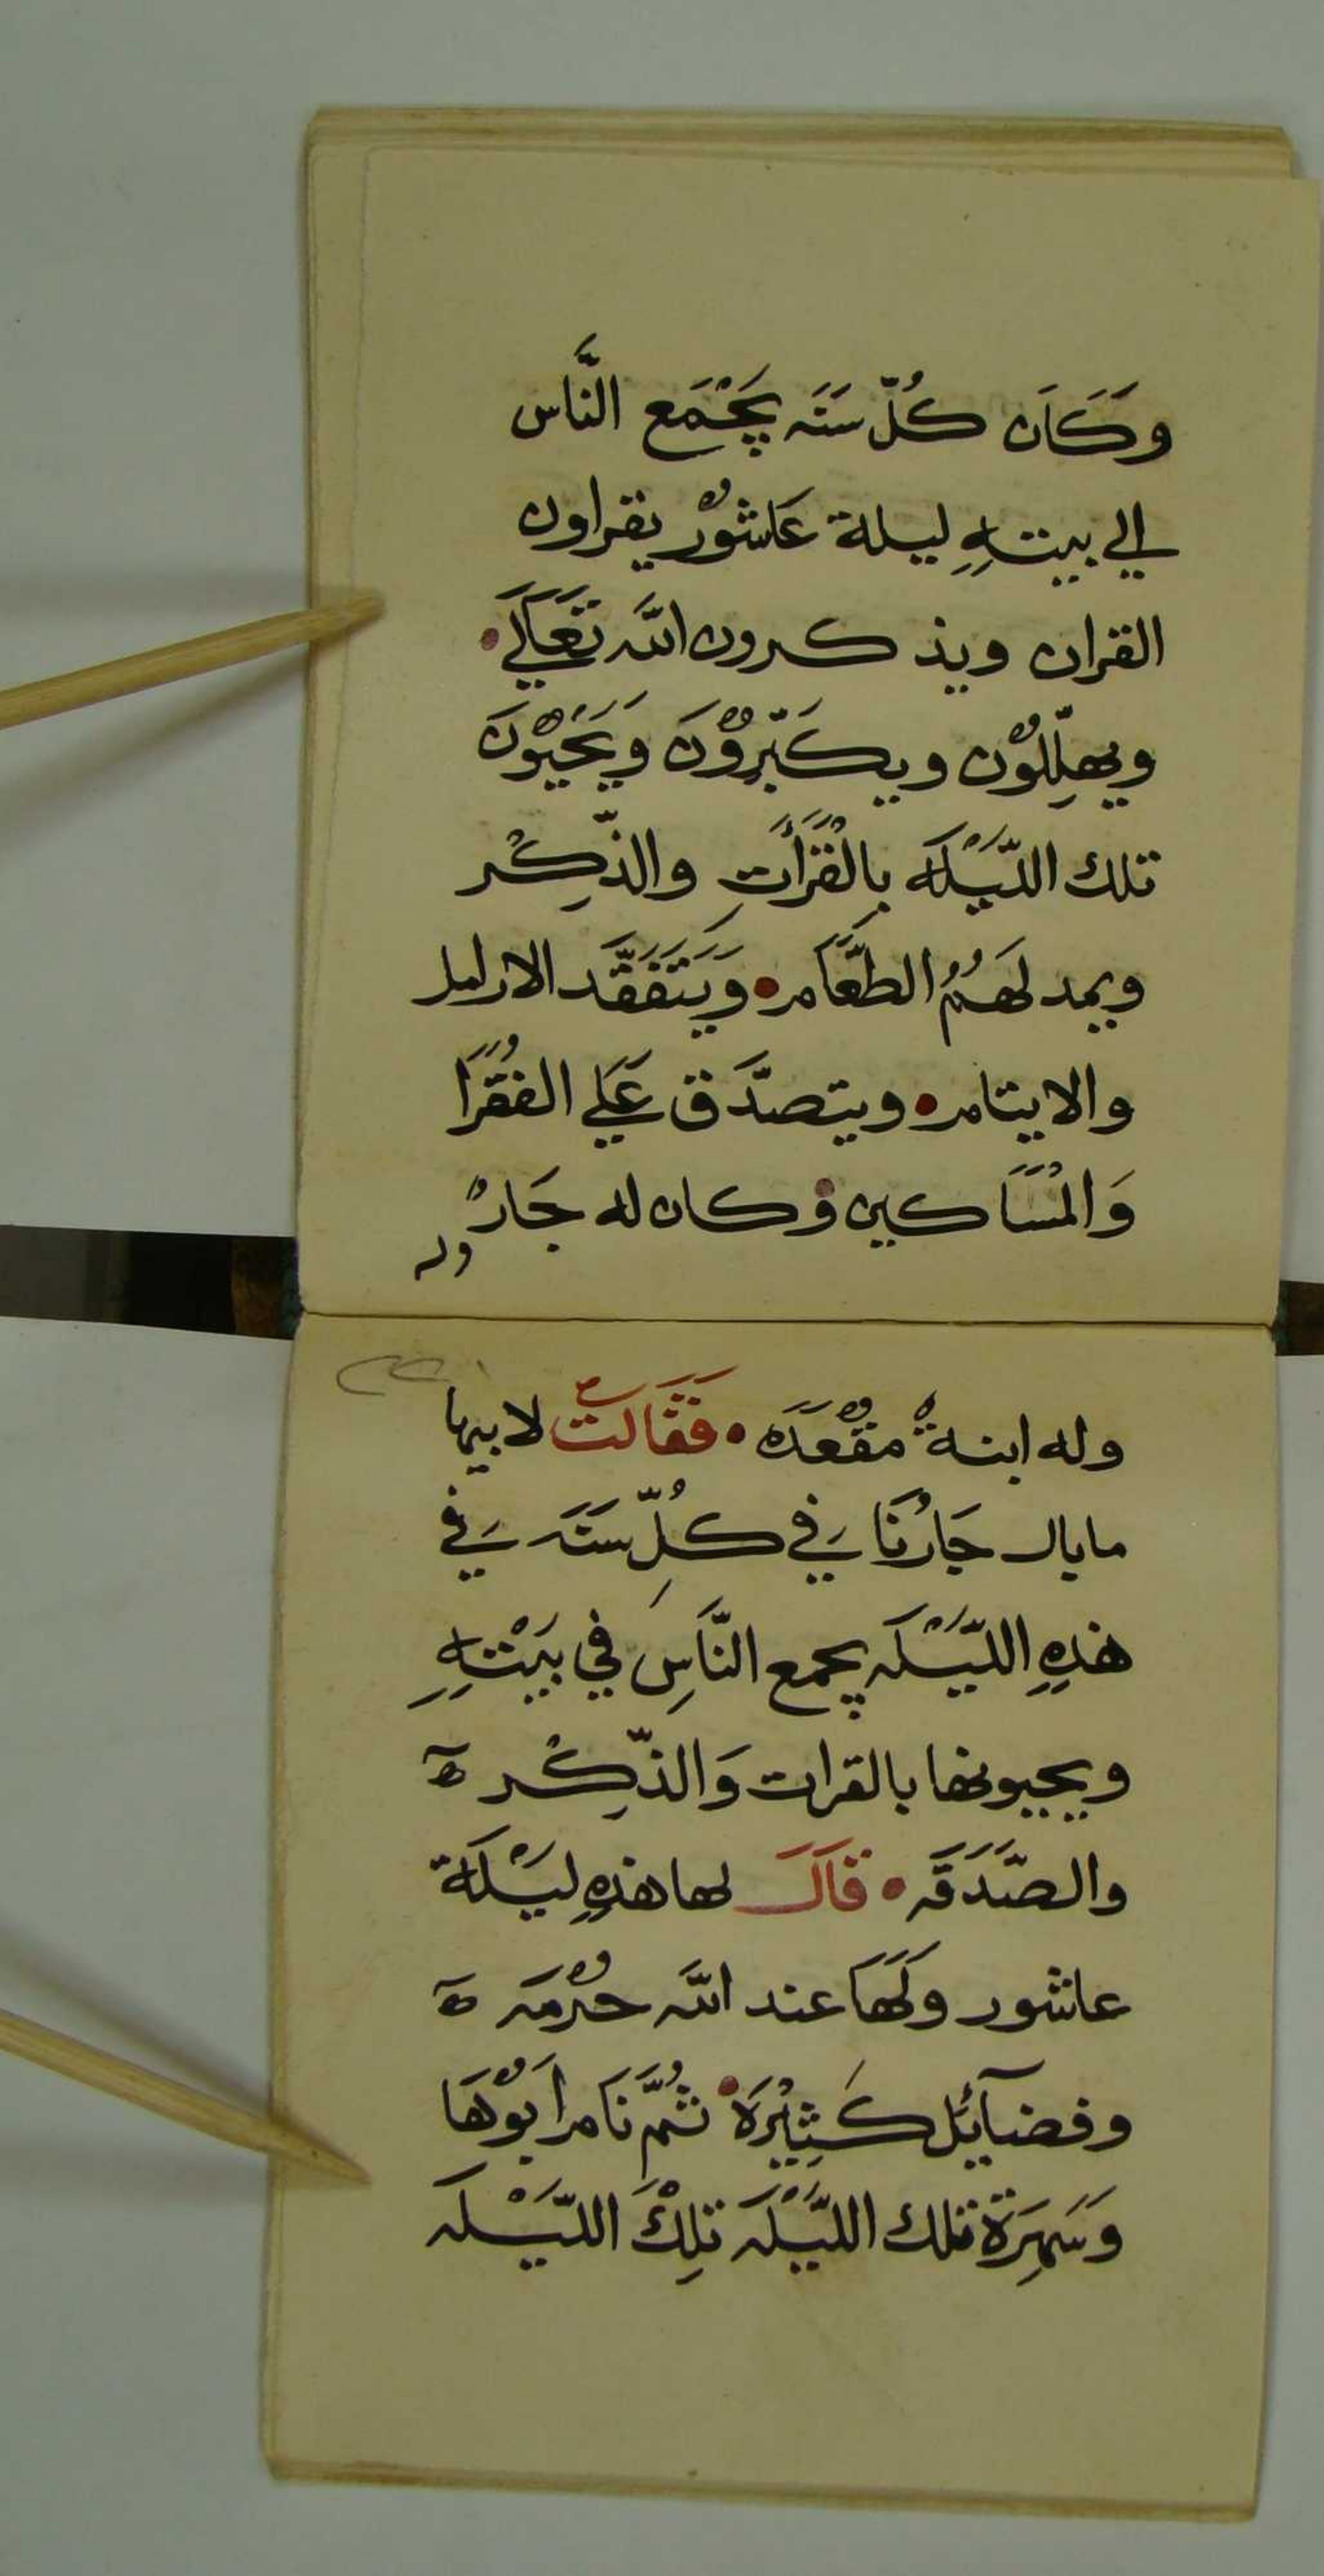 وَكَاَن كُلّ سَنَه يَجْمَع النَّاس
الي بيتهِ ليلة عَاشوْر يقراون
القران ويذكرون الله تَعَالَي
ويهلِّلوْن ويكَبّروْنَ وَيَحْيوْنَ
تلك اللّيْلَه بالقْرَأت والذّكِْر
ويمد لَهُمُ الطّعَام وَيَتَفَقَّد الارامل
والايتام ويتصدَّق عَلَي الفُقَرَا
وَالمْسَاكين وكان له جَارْ
وله
وله ابنةْ مقْعَدَه فَقَالَتْ لابيها
مابال جَارْنَا في كُلِّ سَنَه في
هذهِ اللّيْلَه يجمع النَّاسِ في بيَتْهِ
ويحيونها بالقرات وَالذّكِْر
والصَّدَقَه قَالَ لها هذهِ ليْلَة
عاشور ولَهَا عند الله حُرْمَه
وفضآئل كَثِيْرَة ثُمَّ نَام اَبوْهَا
وَسَهِرَة تلك اللَّيْلَه تلِكْ اللّيْلَه